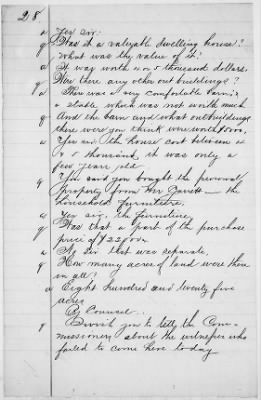 28
a Yes sir.
q Was it a valuable dwelling house?
What was the value of it?
a It was worth 4 or 5 thousand dollars.
q Were there any other out buildings?
a There was a very comfortable barn &
a stable which was not worth much
q And the barn and what outbuildings
there were you think were worth
a Yes sir the house cost between 4
& 5 thousand, it was only a
few years old
q You said you bought the personal
property from Mr Garrett — the
household furniture.
a Yes sir, the furniture
q Was that a part of the purchase
price of $22500.
a No sir that was separate.
q How many acres of land were there
in all?
a Eight hundred and seventy five
acres
By Counsel.
q I wish you to tell the Com-
missioners about the witnesses who
failed to come here today